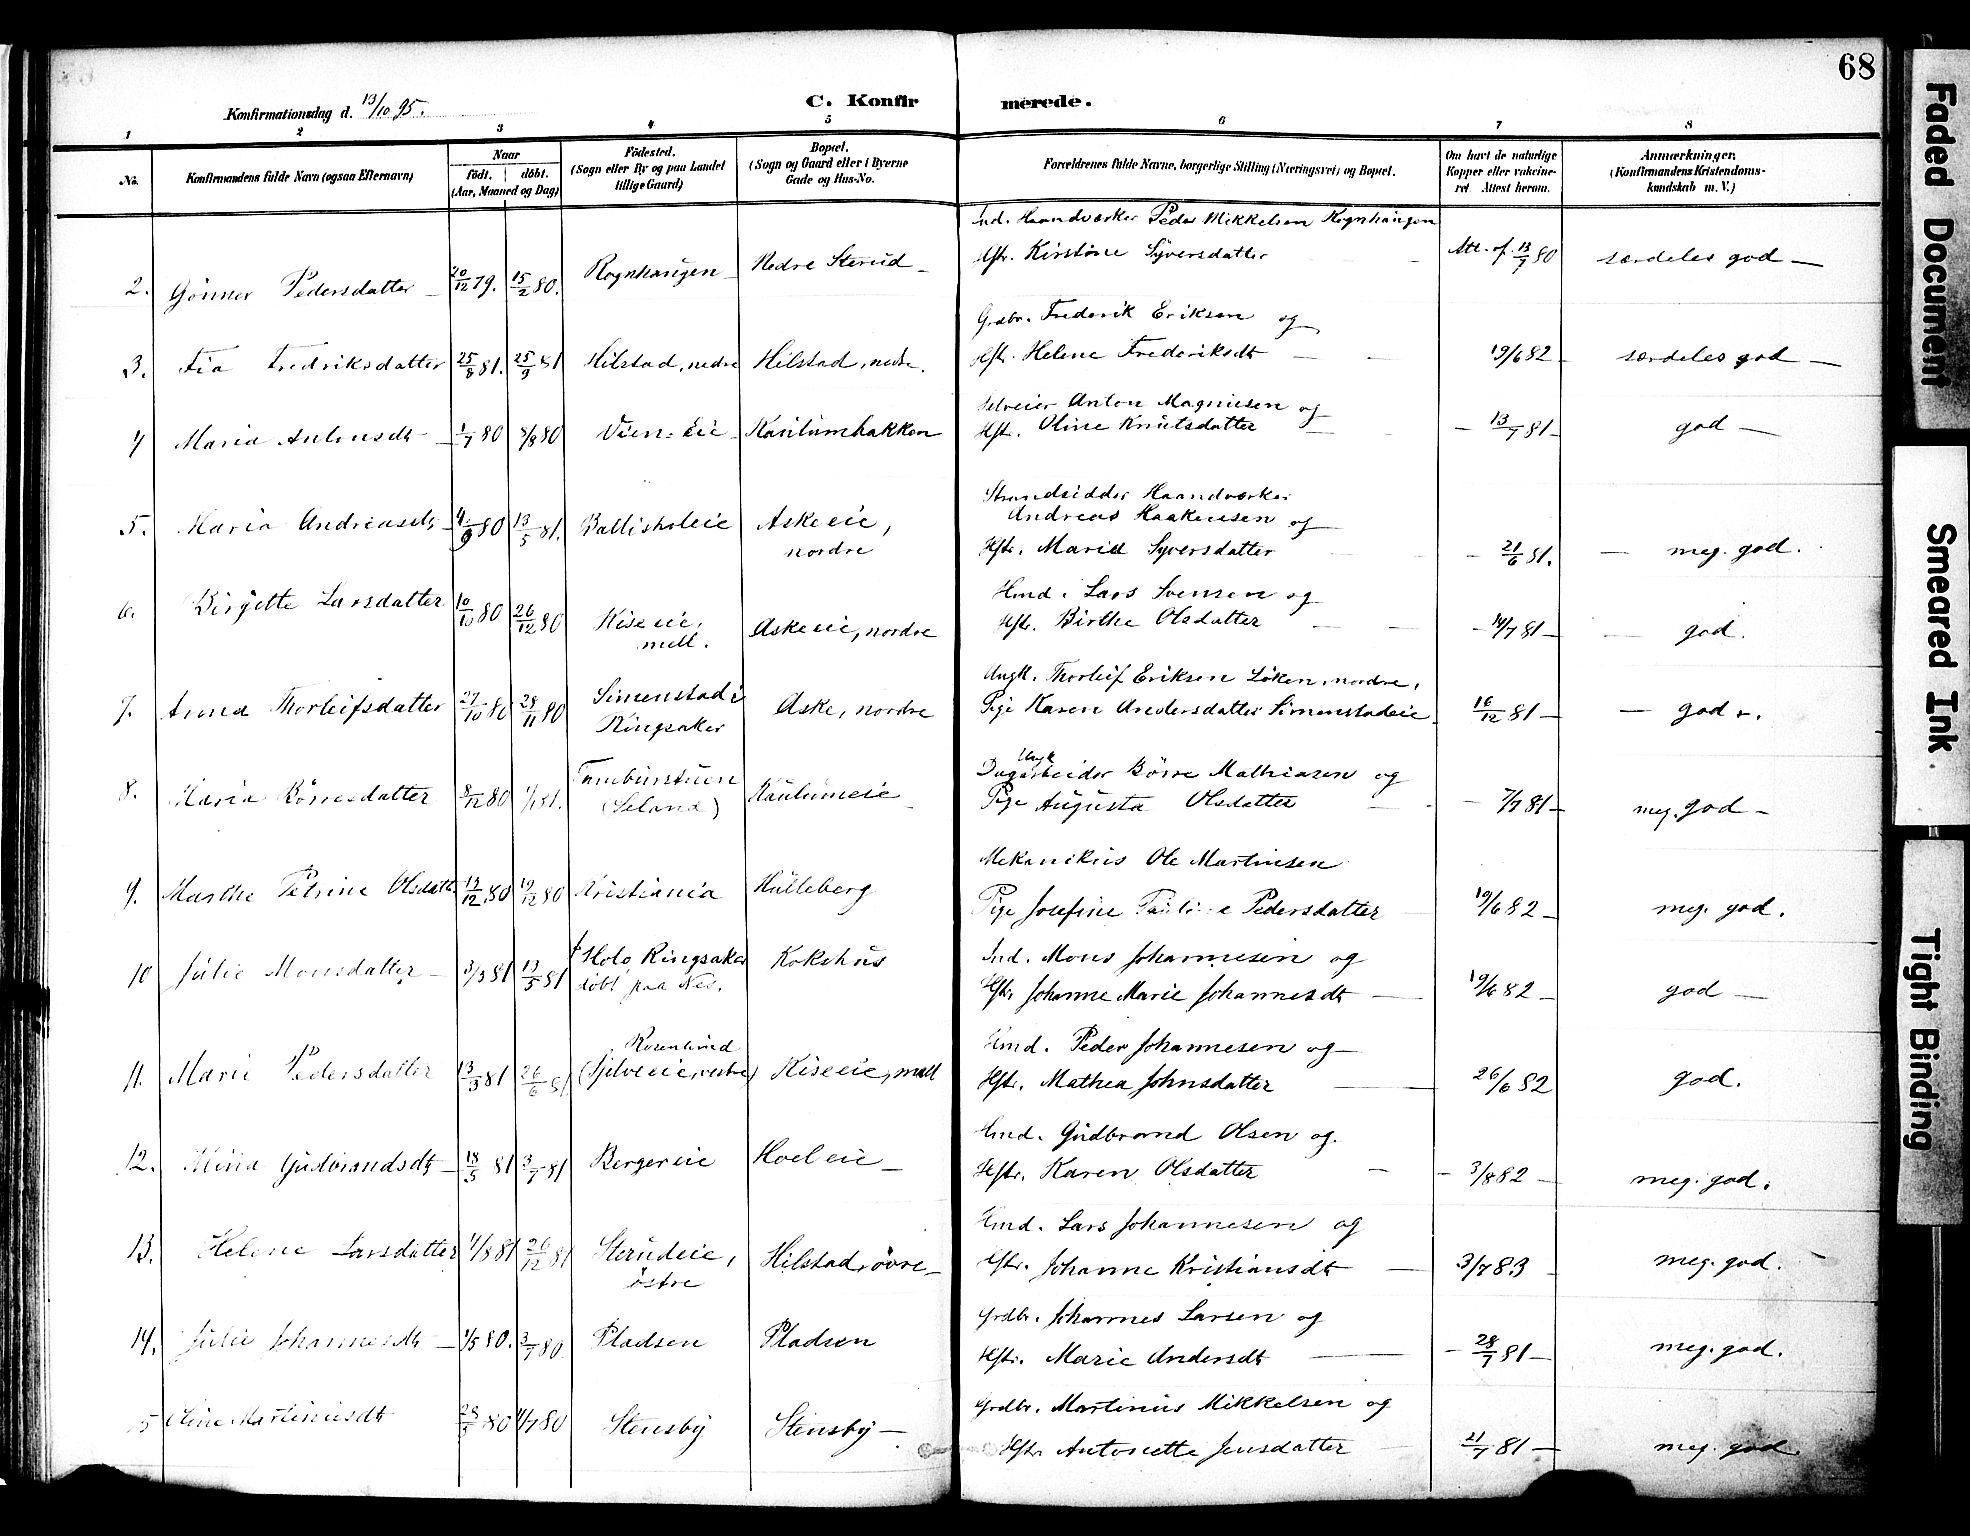 68
Konfirmationsdag d. 13/10 95.
C. Konfirmerede.
1 2 3 4 5 6 7 8
No.
Konfirmandens fulde Navn (ogsaa Efternavn)
Naar
födt. döbt.
(Aar, Maaned og Dag)
Födested.
(Sogn eller By og paa Landet
tillige Gaard)
Bopæl.
(Sogn og Gaard eller i Byerne
Gade og Hus-No.
Forældrenes fulde Navne, borgerlige Stilling (Næringsvei) og Bopæl.
Om havt de naturlige
Kopper eller vakcine-
ret. Attest herom.
Anmærkninger.
(Konfirmandens Kristendoms-
kundskab m. V.)
Ind. Haandværker Peder Mikkelsen Rognhaugen
2. Gunner Pedersdatter 20/12 79. 15/2 80. Rognhaugen Nedre Sterud Hstr. Kirstine Syversdatter Att. af 13/7 80 særdeles god
Grdbr. Frederik Eriksen og
3. Fia Fredriksdatter 25/8 81. 25/9 81 Hilstad, nedre Hilstad, nedre. Hstr. Helene Frederiksdt 19/6 82 særdeles god
Selveier Anton Magnusen og
4 Maria Antonsdt 1/7 80 8/8 80 Vien-eie Kaulumbakken Hstr. Oline Knutsdatter 13/7 81 god
Strandsidder Haandværker
Andreas Haakensen og
5. Maria Andreasdtr 4/9 80 13/5 81. Ballisholeie Askeeie,
nordre Hstr. Maria Syversdatter 21/6 81. meg. god.
Hmd. Lars Svensen og
6. Birgitte Larsdatter 10/10 80 26/12 80 Kiseeie,
mell. Askeeie, nordre Hstr. Birthe Olsdatter 14/7 81 god.
Ungk. Thorleif Eriksen Löken, nordre,
7. Anna Thorleifsdatter 27/10 80 28/11 80 Simenstad i
Ringsaker Aske, nordre Pige Karen Andersdatter Simenstadeie 16/12 81 god
Ungk
Dagarbeider Börre Mathiasen og
8. Maria Börresdatter 8/12 80 1/1 81. Tambustuen
(Seland) Kaulumeie Pige Augusta Olsdatter 7/7 81 meg. god
Mekanikus Ole Martinsen
9. Marthe Petrine Olsdatt. 13/12 80 19/12 80 Kristiania Hulleberg Pige Josefine Pauline Pedersdatter 19/6 82 meg. god.
Ind. Mons Johannesen og
10 Julie Monsdatter 3/3 81 13/5 81 Holo Ringsaker
döbt paa Nes. Kokshus Hstr Johanne Marie Johannesdt 19/6 82 god
Hmd. Peder Johannesen og
11. Marie Pedersdatter 13/3 81 26/6 81 Rosenlund
(Tjelveeie, vestre) Kiseeie, mell Hstr. Mathea Johnsdatter 26/6 82 god.
Hmd. Gudbrand Olsen og
12. Mina Gudbrandsdtr 18/5 81 3/7 81 Bergereie Hoeleie Hstr. Karen Olsdatter 3/8 82 meg. god.
Hmd. Lars Johannesen og
13. Helene Larsdatter 4/8 81 26/12 81 Sterudeie,
östre Hilstad, övre Hstr. Johanne Kristiansdt 3/7 83 meg. god.
Grdbr. Johannes Larsen og
14. Julie Johannesdtr 1/5 80. 3/7 80 Pladsen Pladsen Hstr. Marie Andersdt 28/7 81 meg. god.
Grdbr. Martinus Mikkelsen og
15 Oline Martinusdt 80 4/7 80 Stensby Stensby Hstr. Antonette Jensdatter 21/7 81 meg. god.
Faded Document
Smeared Ink.
Tight Binding